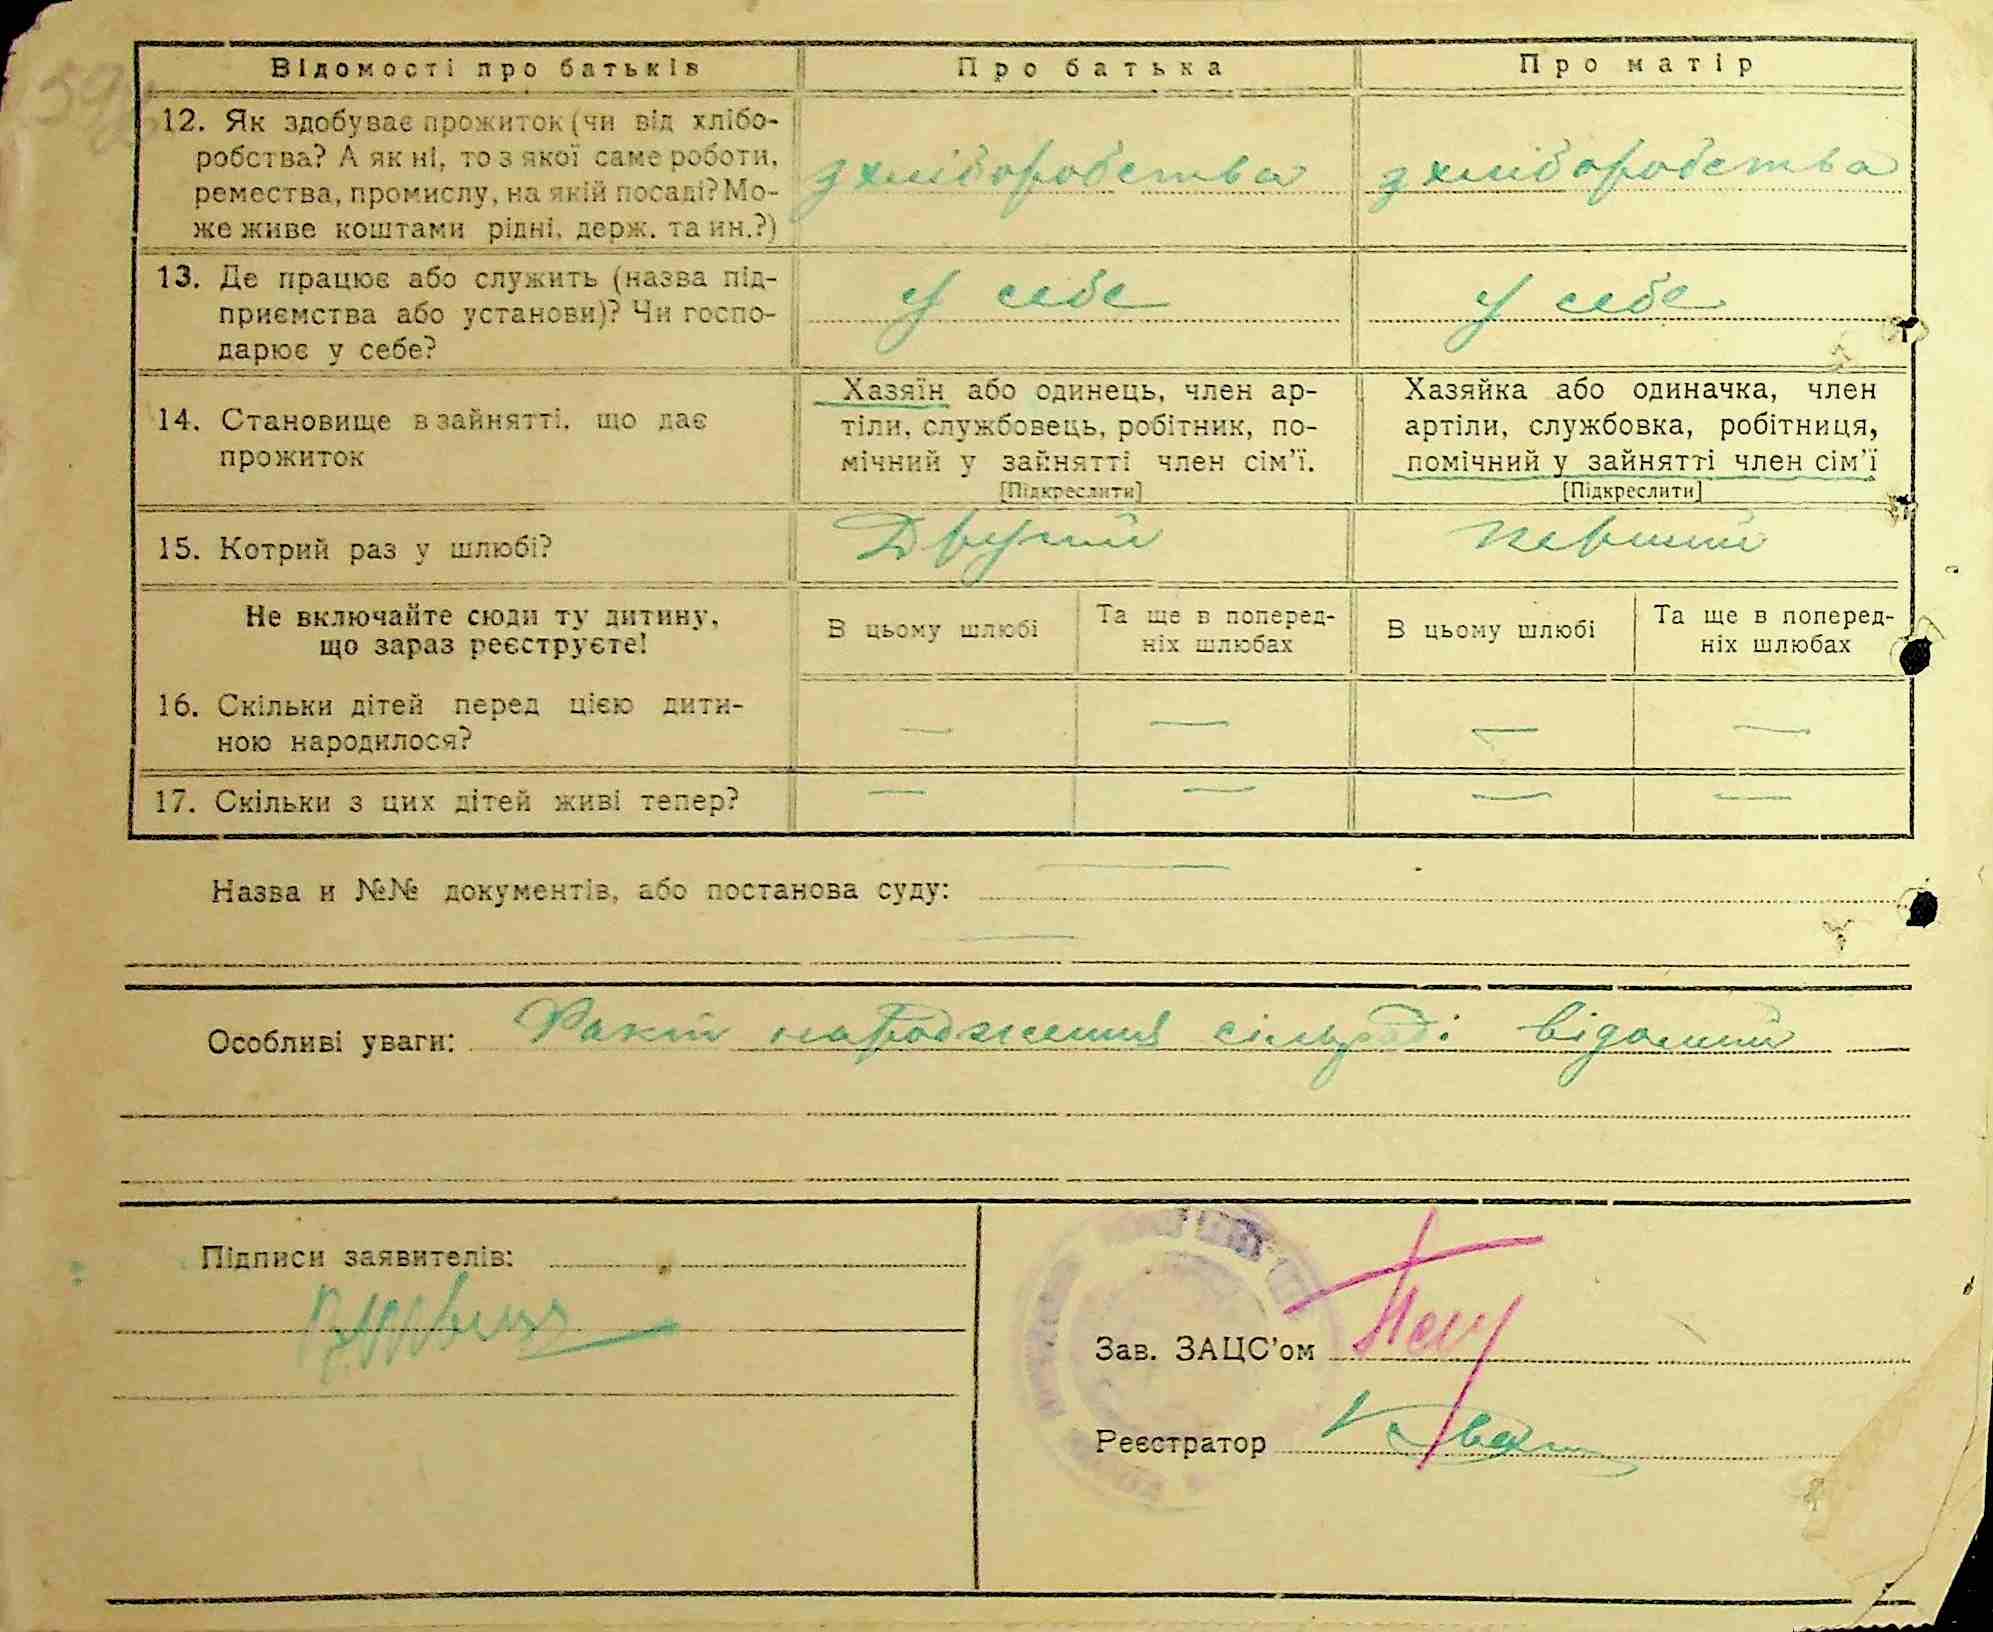 Відомості про батьків
Про батька
Про матір
12. Як здобуває прожиток (чи від хлібо-
робства? А як ні, то з якої саме роботи,
ремества, промислу, на якій посаді? Мо-
же живе коштами рідні, держ. та ин.?)
з хліборобства
з хліборобства
13. Де працює або служить (назва під-
приємства або установи)? Чи госпо-
дарює у себе?
у себе
у себе
14. Становище в зайнятті, що дає
прожиток
Хазяїн або одинець, член ар-
тіли, службовець, робітник, по-
мічний у зайнятті член сім'ї.
[Підкреслити]
Хазяйка або одиначка, член
артіли, службовка, робітниця,
помічний у зайнятті член сім'ї
[Підкреслити]
15. Котрий раз у шлюбі?
Другий
Перший
Не включайте сюди ту дитину,
що зараз реєструєте!
В цьому шлюбі
Та ще в поперед-
ніх шлюбах
В цьому шлюбі
Та ще в поперед-
ніх шлюбах
16. Скільки дітей перед цією дити-
ною народилося?
— — — —
17. Скільки з цих дітей живі тепер?
— — — —
Назва и №№ документів, або постанова суду: —
—
Особливі уваги: Факт народження сільраді відомий
Підписи заявителів:
Зав. ЗАЦС'ом
Реєстратор